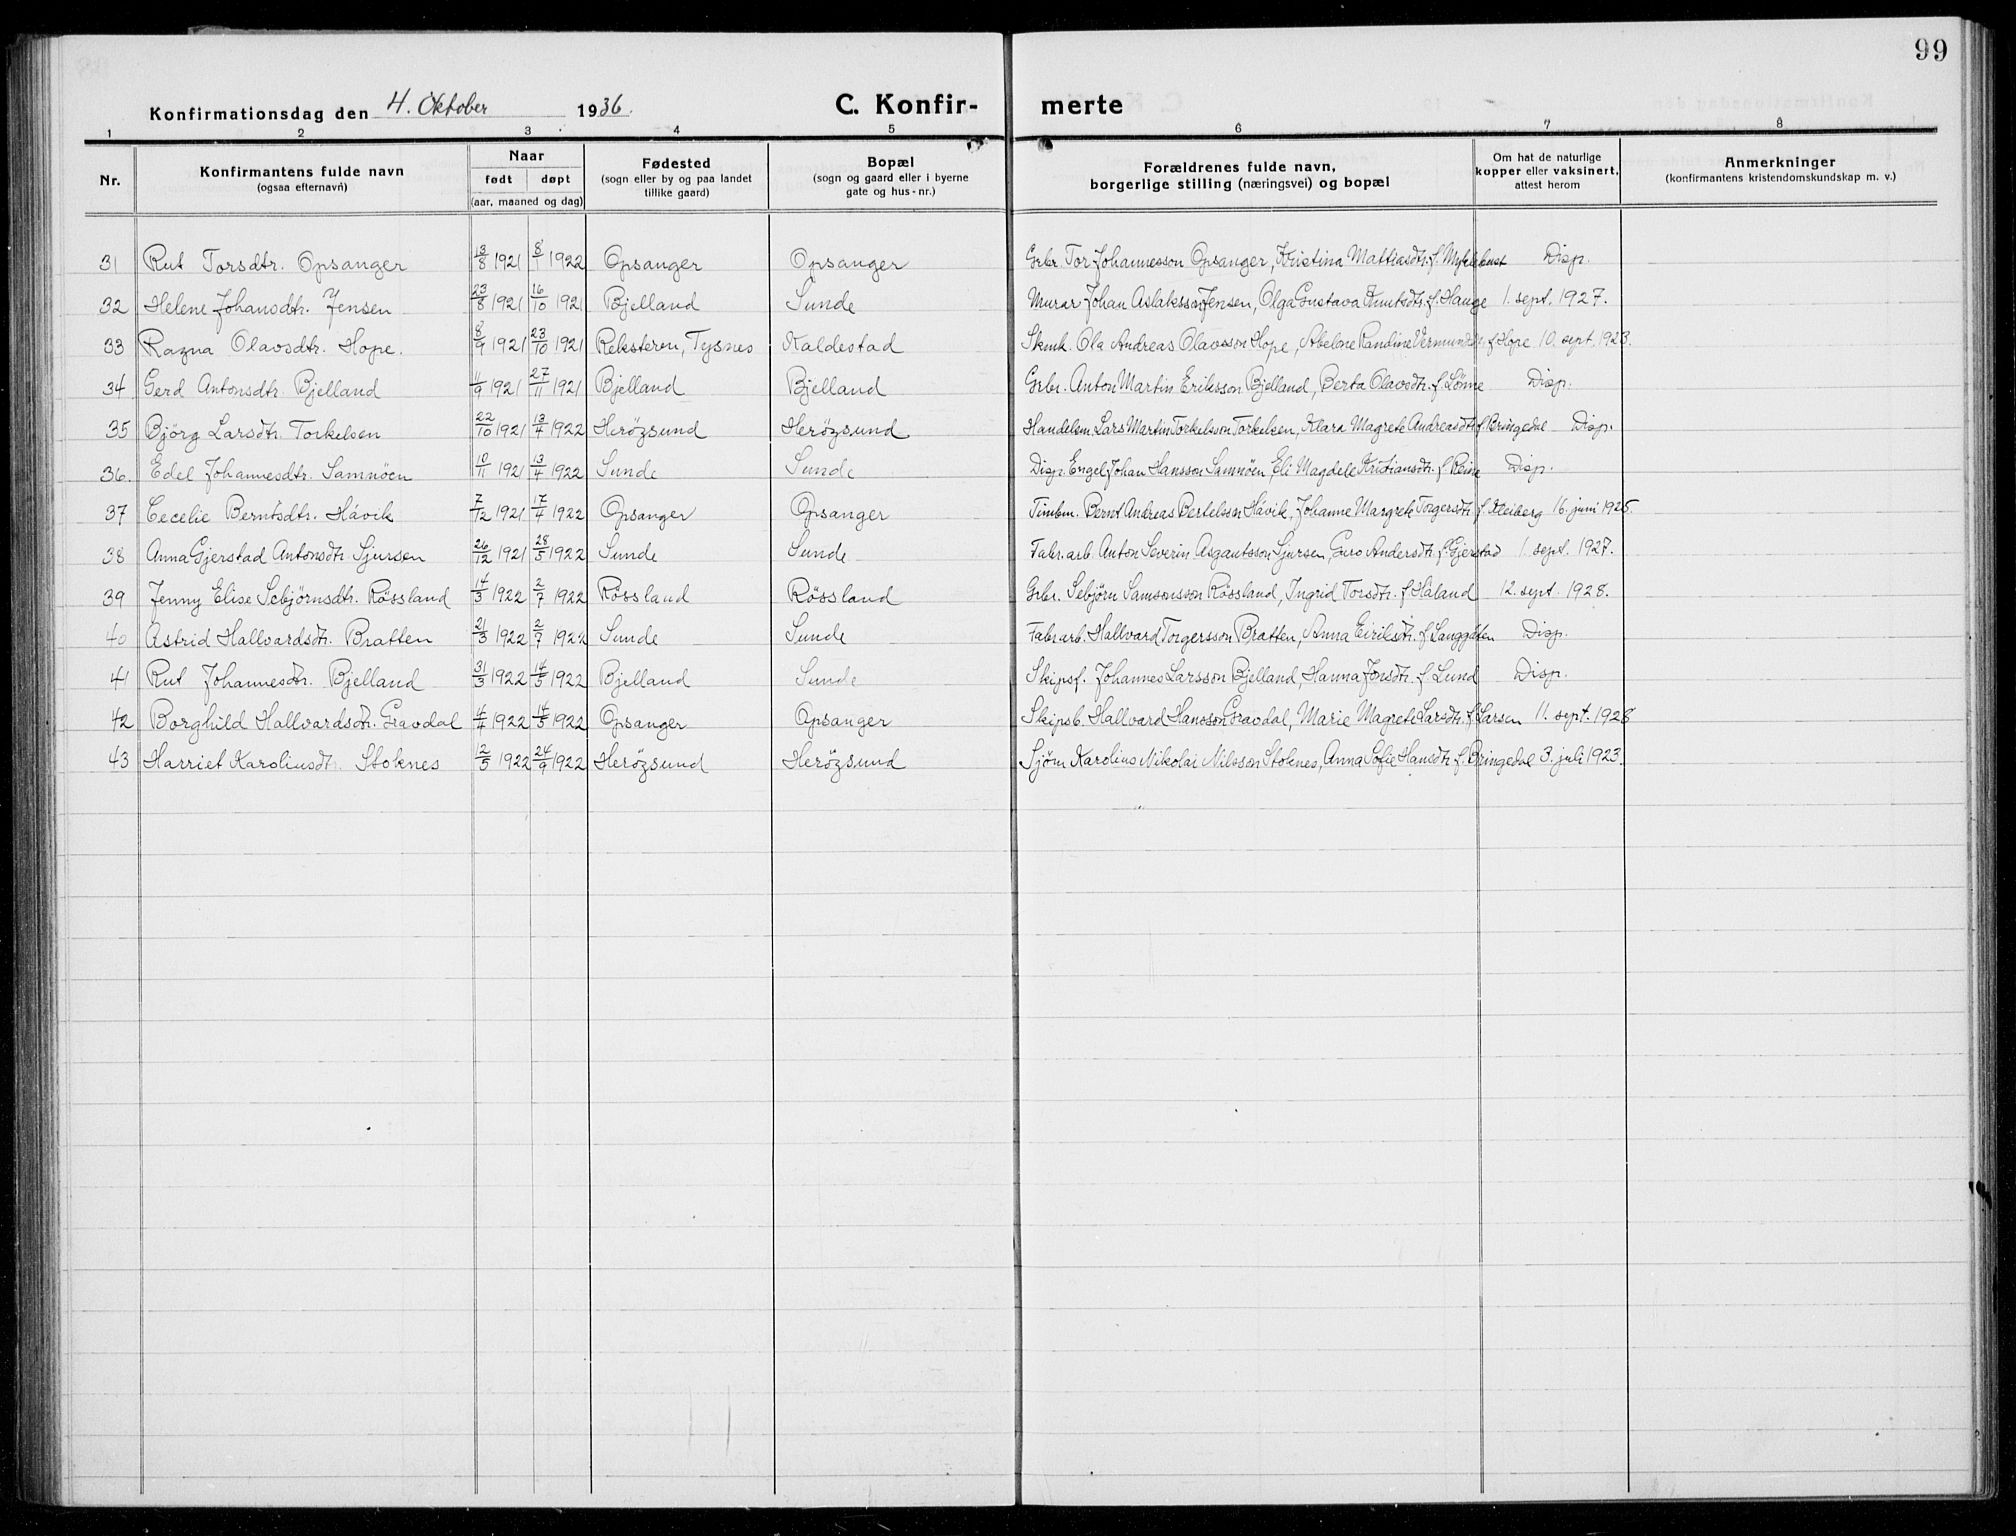 99
Konfirmationsdag den 4. Oktober 1936. C. Konfir- merte
1 2 3 4 5 6 7 8
Nr. Konfirmantens fulde navn (ogsaa efternavn) Naar født døpt (aar, maaned og dag) Fødested (sogn eller by og paa landet tillike gaard) Bopæl (sogn og gaard eller i byerne gate og hus-nr.) Forældrenes fulde navn, borgerlige stilling (næringsvei) og bopæl Om hat de naturlige kopper eller vaksinert, attest herom Anmerkninger (konfirmantens kristendomskundskap m. v.)
31 Rut Torsdtr. Opsanger 13/8 1921 8/1 1922 Opsanger Opsanger Grbr. Tor Johannesson Opsanger, Kristina Mattiasdtr. f. Myklebust Disp.
32 Helene Johansdtr. Jensen 23/8 1921 16/10 1921 Bjelland Sunde Murar Johan Aslaksson Jensen, Olga Gustava Knutsdtr. f. Hauge 1. sept. 1927.
33 Ragna Olavsdtr. Hope. 8/9 1921 23/10 1921 Reksteren, Tysnes Kaldestad Skmk. Ola Andreas Olavsson Hope, Abelone Randine Vermundsd. f. Hope 10. sept. 1923.
34 Gerd Antonsdtr. Bjelland 11/9 1921 27/11 1921 Bjelland Bjelland Grbr. Anton Martin Eriksson Bjelland, Berta Olavsdtr. f. Lönne Disp.
35 Björg Larsdtr. Torkelsen 22/10 1921 13/4 1922 Herøysund Herøysund Handelsm. Lars Martin Torkelsson Torkelsen, Klara Magrete Andreasdtr. f. Bringedal Disp.
36. Edel Johannesdtr. Samnöen 10/11 1921 13/4 1922 Sunde Sunde Disp. Engel Johan Hansson Samnöen, Eli Magdele Kristiansdtr. f. Reine Disp.
37 Cecelie Berntsdtr. Håvik 7/12 1921 17/4 1922 Opsanger Opsanger Timbm. Bernt Andreas Bertelsson Håvik, Johanne Margrete Torgersdtr. f. Kleiberg 16. juni 1925
38 Anna Gjerstad Antonsdtr. Sjursen 26/12 1921 28/5 1922 Sunde Sunde Fabr.arb. Anton Severin Asgautsson Sjursen, Guro Andersdtr. f. Gjerstad 1. sept. 1927.
39 Jenny Elise Sebjörnsdtr. Røssland 14/3 1922 2/7 1922 Røssland Røssland Grbr. Sebjörn Samsonsson Røssland, Ingrid Torsdtr. f. Håland 12. sept. 1928.
40 Astrid Hallvardsdtr. Bratten 21/3 1922 2/7 1922 Sunde Sunde Fabr.arb. Hallvard Torgersson Bratten, Anna Eiriksdtr. f. Langgåten Disp.
41 Rut Johannesdtr. Bjelland 31/3 1922 14/5 1922 Bjelland Sunde Skipsf. Johannes Larsson Bjelland, Hanna Jonsdtr. f. Lund Disp.
42 Borghild Hallvardsdtr. Gravdal 4/4 1922 14/5 1922 Opsanger Opsanger Skipsb. Hallvard Hansson Gravdal, Marie Magrete Larsdtr. f. Larsen 11. sept. 1928
43 Harriet Karoliusdtr. Stoknes 12/5 1922 24/9 1922 Herøysund Herøysund Sjöm Karolius Nikolai Nilsson Stoknes, Anna Sofie Hansdtr. f. Bringedal 3. juli 1923.